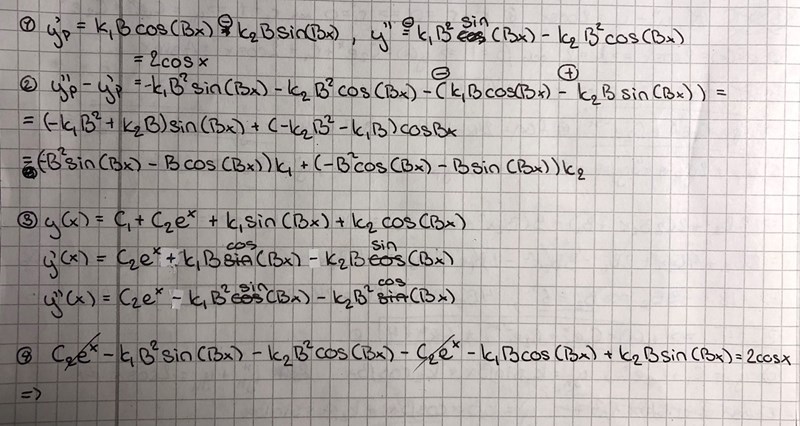 ① y'p = k₁Bcos(Bx) - k₂Bsin(Bx), y'' = -k₁B² sin (Bx) - k₂B²cos(Bx)
= 2cosx
② y''p - y'p = -k₁B²sin(Bx) - k₂B²cos(Bx) - (k₁Bcos(Bx) - k₂Bsin(Bx)) =
= (-k₁B² + k₂B)sin(Bx) + (-k₂B² - k₁B)cosBx
= (-B²sin(Bx) - Bcos(Bx))k₁ + (-B²cos(Bx) - Bsin(Bx))k₂
③ y(x) = C₁ + C₂eˣ + k₁sin(Bx) + k₂cos(Bx)
y'(x) = C₂eˣ + k₁B cos (Bx) - k₂B sin (Bx)
y''(x) = C₂eˣ - k₁B² sin (Bx) - k₂B² cos (Bx)
④ C₂eˣ - k₁B²sin(Bx) - k₂B²cos(Bx) - C₂eˣ - k₁Bcos(Bx) + k₂Bsin(Bx) = 2cosx
=>